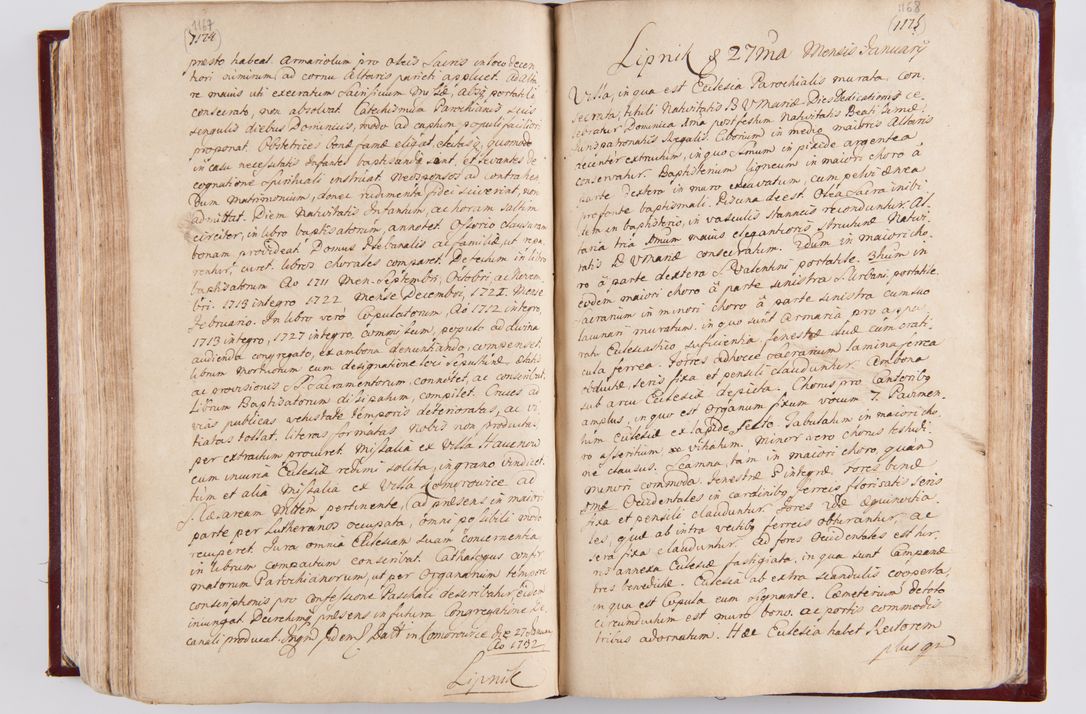 1167
(1174)
presto habeat. Armariolum pro Oleis Sacris in loco decen
tiori nimirum, ad cornu Altaris parieti applicet. Ad Alta
re mavis uti execratum Sacrificium Missæ, absq; portatili
consecrato, non absolvat. Catechismum Parochianis suis
singulis diebus Dominicis, modo ad captum populi faciliori
proponat. Obstetrices bonæ famæ eligat, easq; quomodo
in casu necessitatis Infantes baptisandi sunt, et levantes de
cognatione Spirituali instruat. Neosponsos ad contrahen
dum matrimonium, donec rudimenta fidei sciverint, non
admittat. Diem Nativitatis Infantium, ac horam saltim
circiter, in libro baptisatorum, annotet. Ostiario clausuram
bonam provideat. Domus Plebanalis ac familiæ, ut repa
rentur, curet. libros chorales comparet. Defectum in libro
baptisatorum Ao 1711 Men. Septembr, Octobri, ac Novem
bri. 1713 integro 1722 Mense Decembri, 1727. Mense
Februario. In libro vero Copulatorum Ao 1712 integro,
1713 integro, 1727 integro, commissum, populo ad divina
audienda congregato, ex ambona denuntiando, compenset.
librum Mortuorum cum designatione loci sepulturæ, ætatis
ac provisionis SSacramentorum, connotet, ac conscribat.
Librum Baptisatorum dissipatum, compilet. Cruces ad
vias publicas vetustate temporis deterioratas, ac vi
tiatas tollat. literas formatas Nobis non productas
per extractum procuret. Missalia ex Villa Hauenow
cum iniuria Ecclesiæ redimi solita, in grano vindicet
tum et alia Missalia ex Villa Komorowice ad
S. Cæsaream Mttem pertinente, (ad præsens in maiori
parte per Lutheranos occupata, omni possibili modo
recuperet. Jura omnia Ecclesiam suam concernentia
in librum compactum conscribat. Cathalogus confir
matorum Parochianorum, ut per Organarium tempore
conscriptionis pro Confessione Paschali describatur, eidem
iniungat. Decretumq; præsens in futura Congregatione De
canali producat. In qr̃ fidem. Datt in Komorowice die 27 January
Ao 1732
Lipnik
1168
(1175)
Lipnik & 27ma Mensis January
Villa, in qua est Ecclesia Parochialis murata Con
secrata, tituli Nativitatis B V Mariæ. Dies Dedicationis ce
lebratur Dominica 1ma post festum Nativitatis Beatissimæ.
Jurispatronatus Regalis. Ciborium in medio maioris Altaris
recenter extructum, in quo Ssmum in pixide argentea
conservatur. Baptisterium ligneum in maiori choro à
parte dextera in muro excavatum, cum pelvi ænea
pro fonte baptismali. Piscina deest. Olea Sacra inibi
tum in baptisterio, in vasculis stanneis reconduntur. Al
taria tria 1mum maius elegantioris structuræ Nativi
tatis B V Mariæ consecratum. 2dum in maiori cho
ro à parte dextera S. Valentini portatile. 3tium in
eodem maiori choro à parte sinistra S. Urbani, portatile.
Sacrarium in minori choro à parte sinistra cum suo
lacunari muratum, in quo sunt Armaria pro appa
ratu Ecclesiastico sufficientia, fenestræ duæ cum crati
cula ferrea. Fores ad hocce Sacrarium lamina ferrea
obductæ, seris fixa et pensili clauduntur. Ambona
sub arcu Ecclesiæ depicta. Chorus pro Cantoribg
amplus, in quo est Organum fixum vocum 7. Pavimen
tum Ecclesiæ ex lapide secto. Tabulatum in maiori cho
ro asseritium, ac vitiatum. Minor vero chorus testudi
ne clausus. Scamna, tam in maiori choro, quam
minori commoda. Fenestræ 8 integræ, fores binæ
1mæ Occidentales in cardinibg ferreis florisatis seris
fixa et pensili clauduntur. Fores 2dæ Æquinoctia
les, quæ ab intra vectibg ferreis obturantur, ac
sera fixa clauduntur. Ad fores Occidentales est tur
ris annexa Ecclesiæ fastigiata, in qua sunt Campanæ
tres benedictæ. Ecclesia ab extra scandulis cooperta,
in qua est Cupula cum signante. Cæmeterium de toto
circumductum est muro bono, ac portis commodis
tribus adornatum. Hæc Ecclesia habet Rectorem
plus qr̃